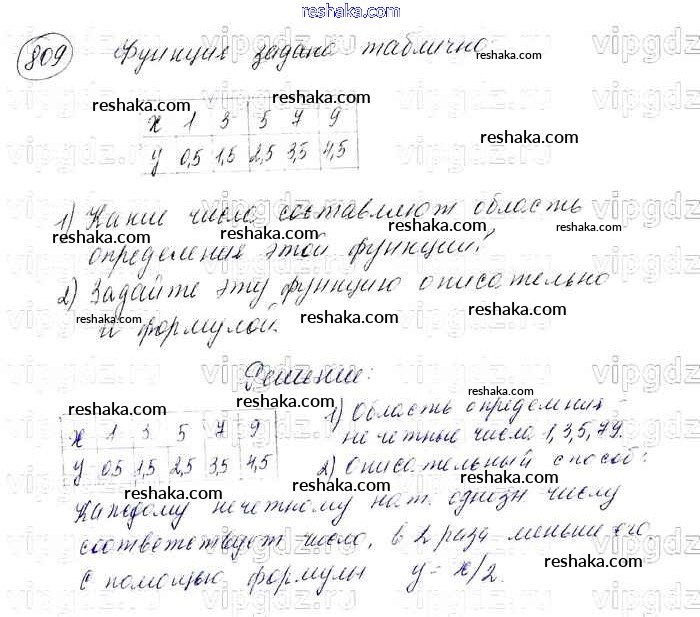 reshaka.com
809 Функция задана таблично
x 1 3 5 7 9
y 0,5 1,5 2,5 3,5 4,5
1) Какие числа составляют область
определения этой функции?
2) Задайте эту функцию описательно
и формулой.
Решение:
x 1 3 5 7 9
y 0,5 1,5 2,5 3,5 4,5
1) Область определения -
нечетные числа 1,3,5,7,9.
2) Описательный способ:
Каждому нечетному нат. однозн числу
соответствует число, в 2 раза меньши его.
С помощью формулы y = x/2.